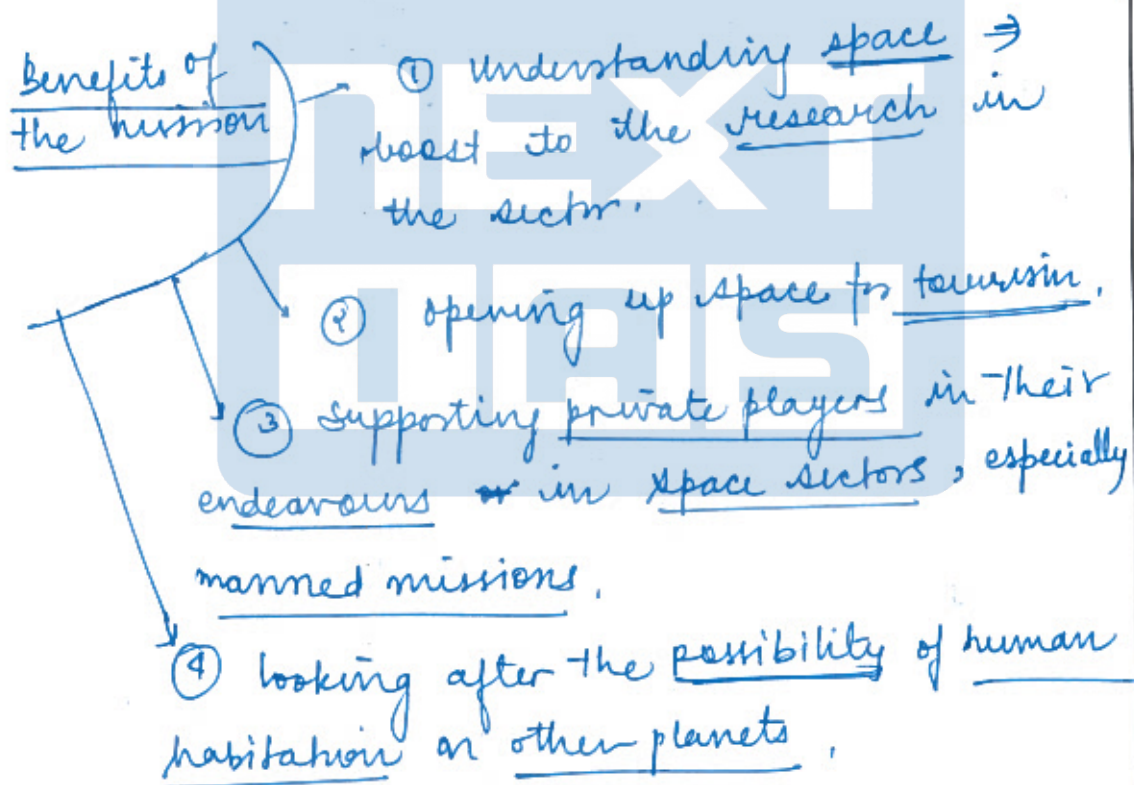 Benefits of
the mission
① Understanding space ⇒
boost to the research in
the sector.
② opening up space for tourism.
③ supporting private players in their
endeavours in space sectors, especially
manned missions.
④ looking after the possibility of human
habitation on other planets.
NEXT
IAS